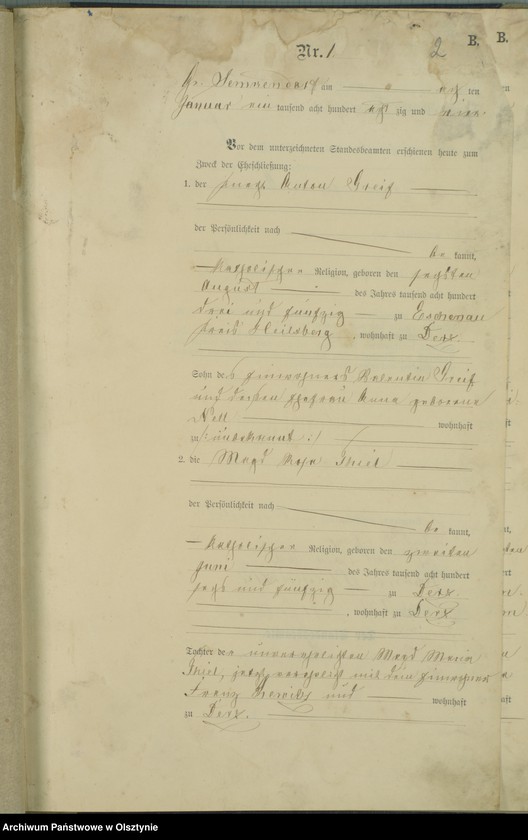 B. B.
Nr. 1.
2
am acht ten
Januar ein tausend acht hundert acht zig und
Vor dem unterzeichneten Standesbeamten erschienen heute zum
Zweck der Eheschließung:
1. der Knecht Anton Greif
der Persönlichkeit nach
be kannt,
katholischer Religion, geboren den sechsten
August des Jahres tausend acht hundert
drei und fünfzig zu Eschenau
Kreis Heilsberg, wohnhaft zu Derz
Sohn des Einwohners Valentin Greif
und dessen Ehefrau Anna geborene
wohnhaft
zu /: unbekannt :/
2. die Magd Rosa Thiel
der Persönlichkeit nach
be kannt,
katholischer Religion, geboren den zweiten
Juni des Jahres tausend acht hundert
sechs und fünfzig zu Derz
, wohnhaft zu Derz
Tochter der unverehelichten Magd Maria
Thiel, jetzt verehelicht mit dem Einwohner
Franz und wohnhaft
zu Derz.
Archiwum Państwowe w Olsztynie